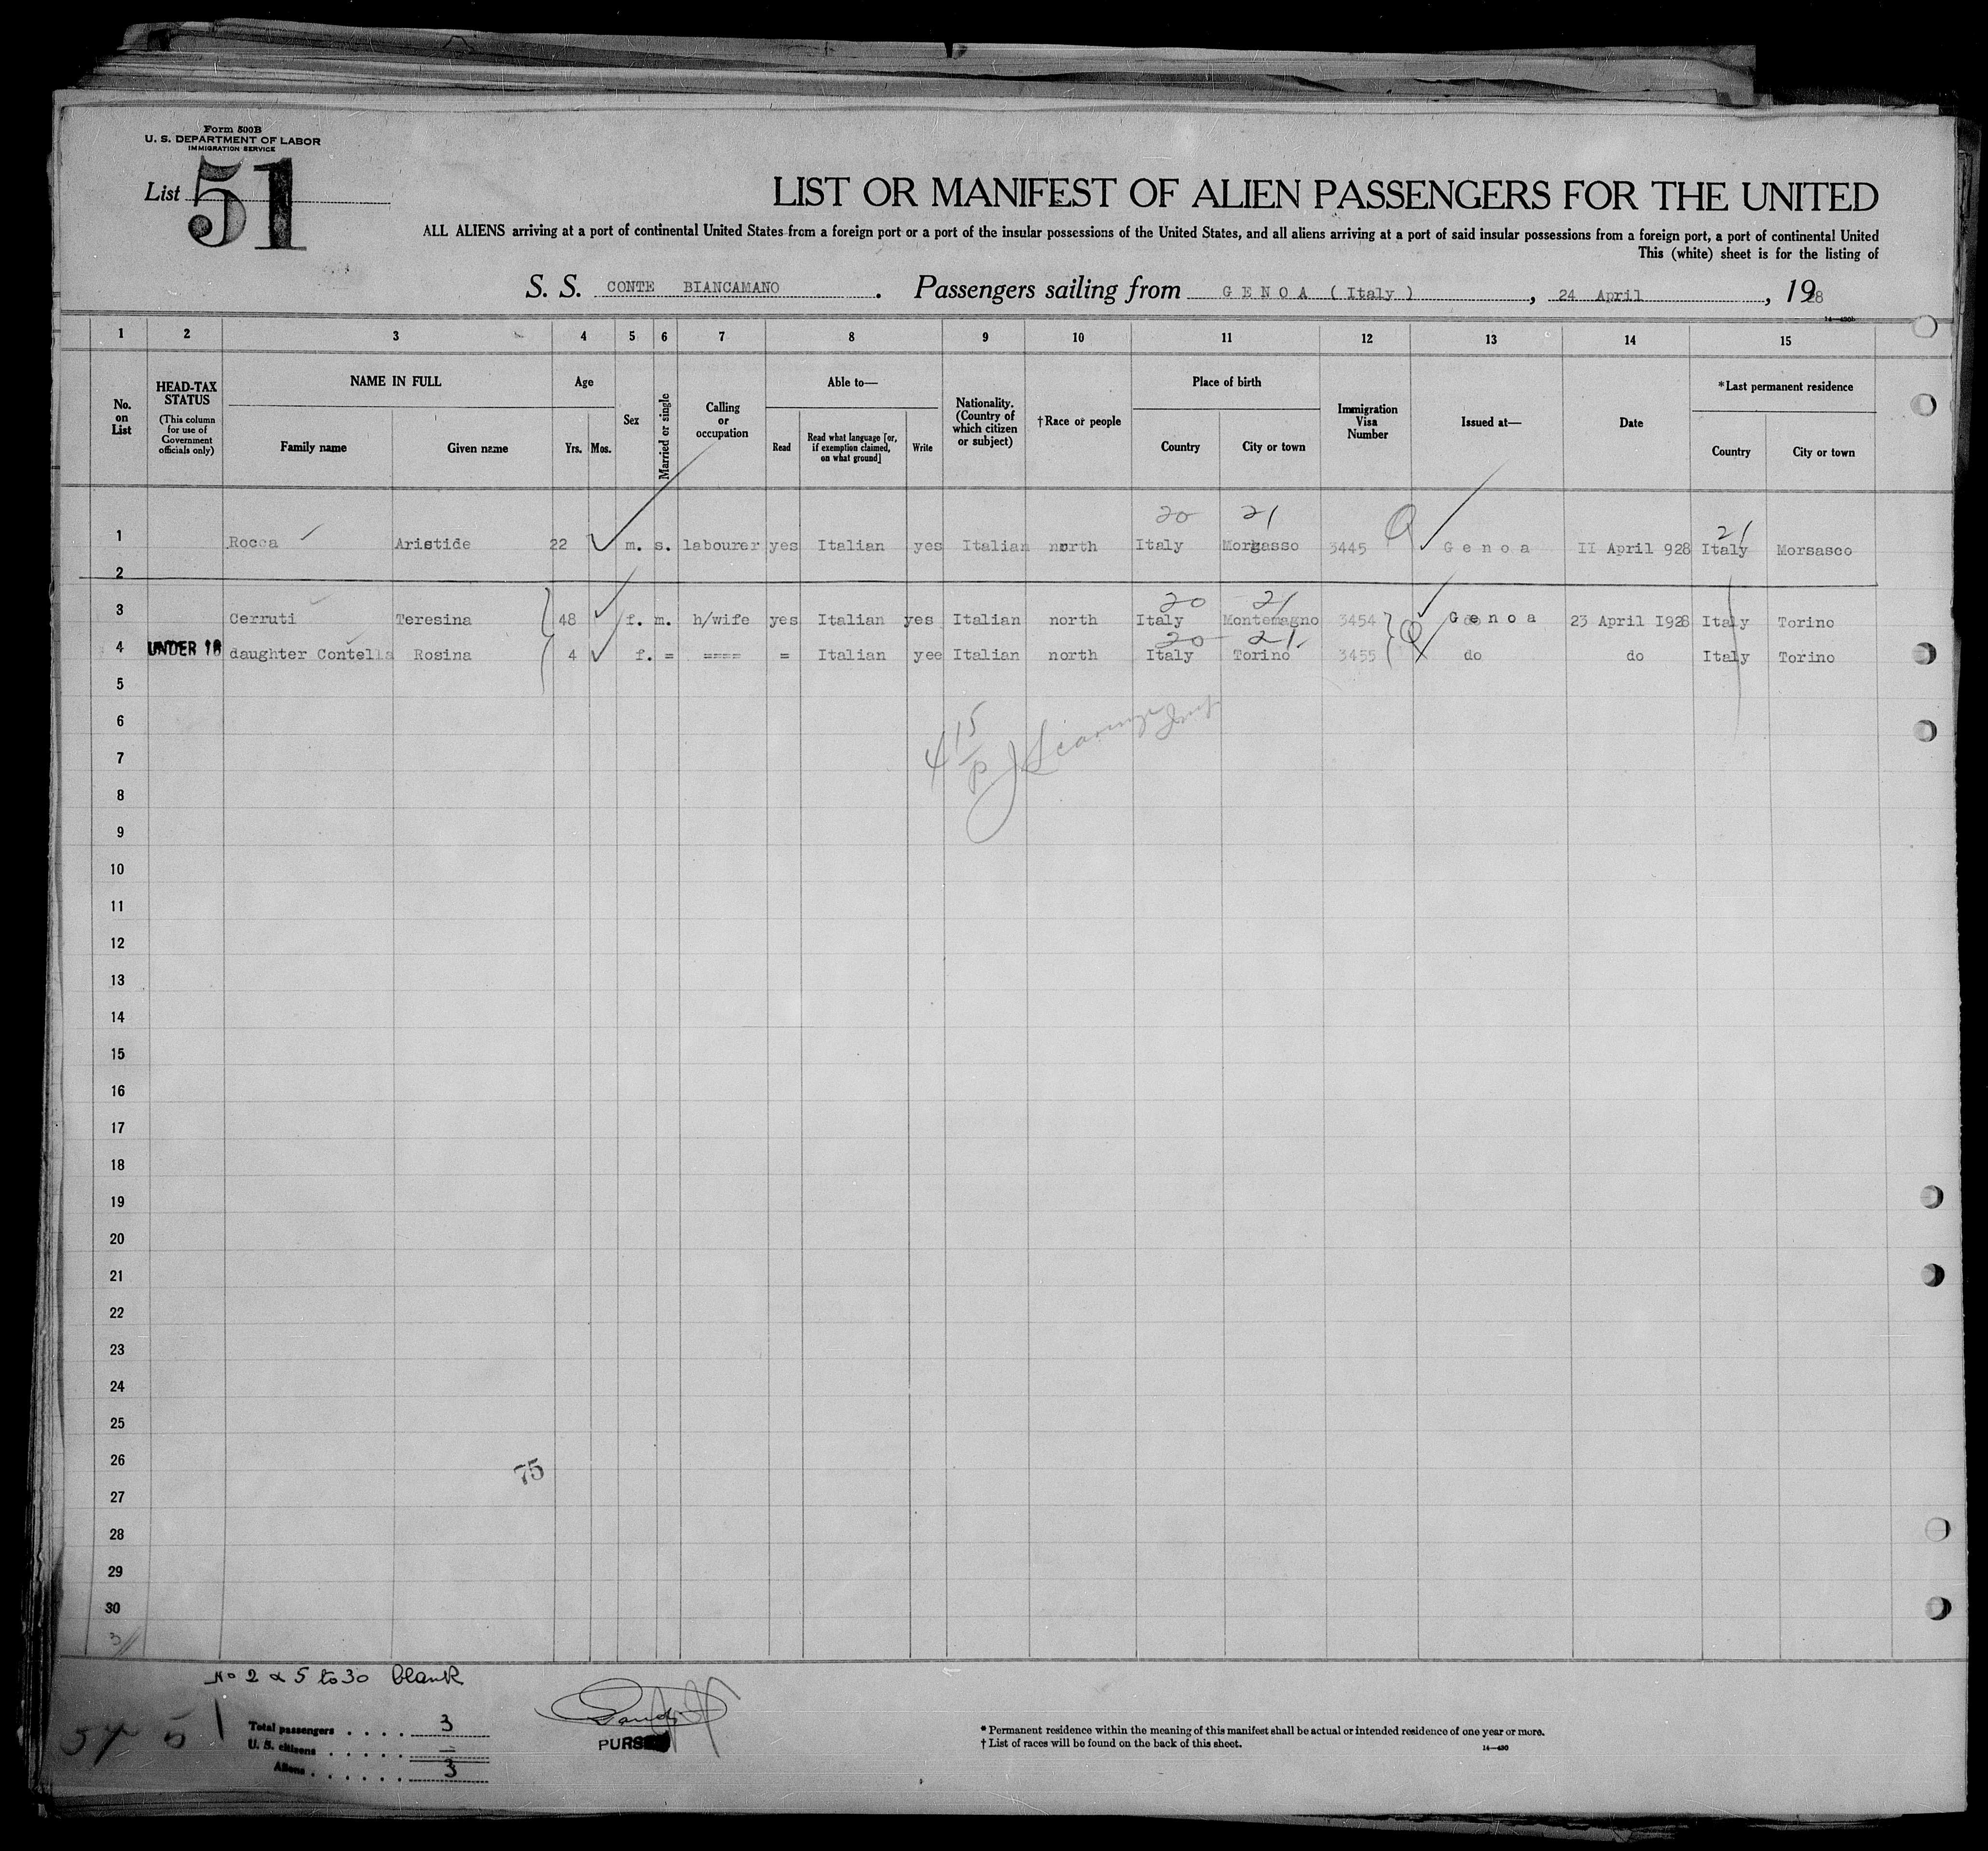 Form 500B
U. S. DEPARTMENT OF LABOR
IMMIGRATION SERVICE
List 51
LIST OR MANIFEST OF ALIEN PASSENGERS FOR THE UNITED
ALL ALIENS arriving at a port of continental United States from a foreign port or a port of the insular possessions of the United States, and all aliens arriving at a port of said insular possessions from a foreign port, a port of continental United
This (white) sheet is for the listing of
S. S. CONTE BIANCAMANO . Passengers sailing from GENOA (Italy) , 24 April , 1928
1 2 3 4 5 6 7 8 9 10 11 12 13 14 15
No. on List
HEAD-TAX STATUS
(This column for use of Government officials only)
NAME IN FULL
Family name Given name
Age
Yrs. Mos.
Sex
Married or single
Calling or occupation
Able to—
Read
Read what language [or, if exemption claimed, on what ground]
Write
Nationality. (Country of which citizen or subject)
†Race or people
Place of birth
Country City or town
Immigration Visa Number
Issued at—
Date
*Last permanent residence
Country City or town
20 21 21
1 Rocca Aristide 22 m. s. labourer yes Italian yes Italian north Italy 3445 Genoa II April 928 Italy Morsasco
2
20 21
3 Cerruti Teresina 48 f. m. h/wife yes Italian yes Italian north Italy Montemagno 3454 Genoa 23 April I928 Italy Torino
20 21
4 UNDER 16 daughter Contella Rosina 4 f. = ==== = Italian yee Italian north Italy Torino 3455 do do Italy Torino
5
6
7
8
9
10
11
12
13
14
15
16
17
18
19
20
21
22
23
24
25
26
75
27
28
29
30
No 2 & 5 to 30 blank
Total passengers . . . . 3
U. S. citizens . . . . . =
Aliens . . . . . . 3
PURSER
* Permanent residence within the meaning of this manifest shall be actual or intended residence of one year or more.
† List of races will be found on the back of this sheet.
14—430